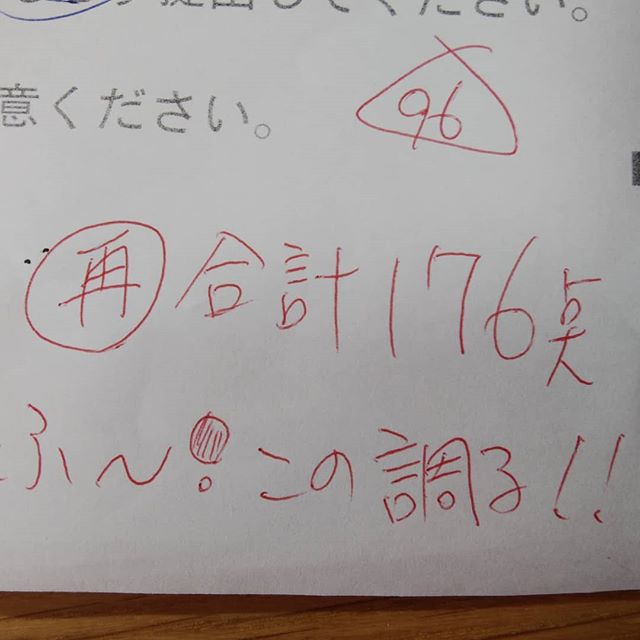 提出してください。
意ください。
96
再 合計176点
ふ〜! この調る!!